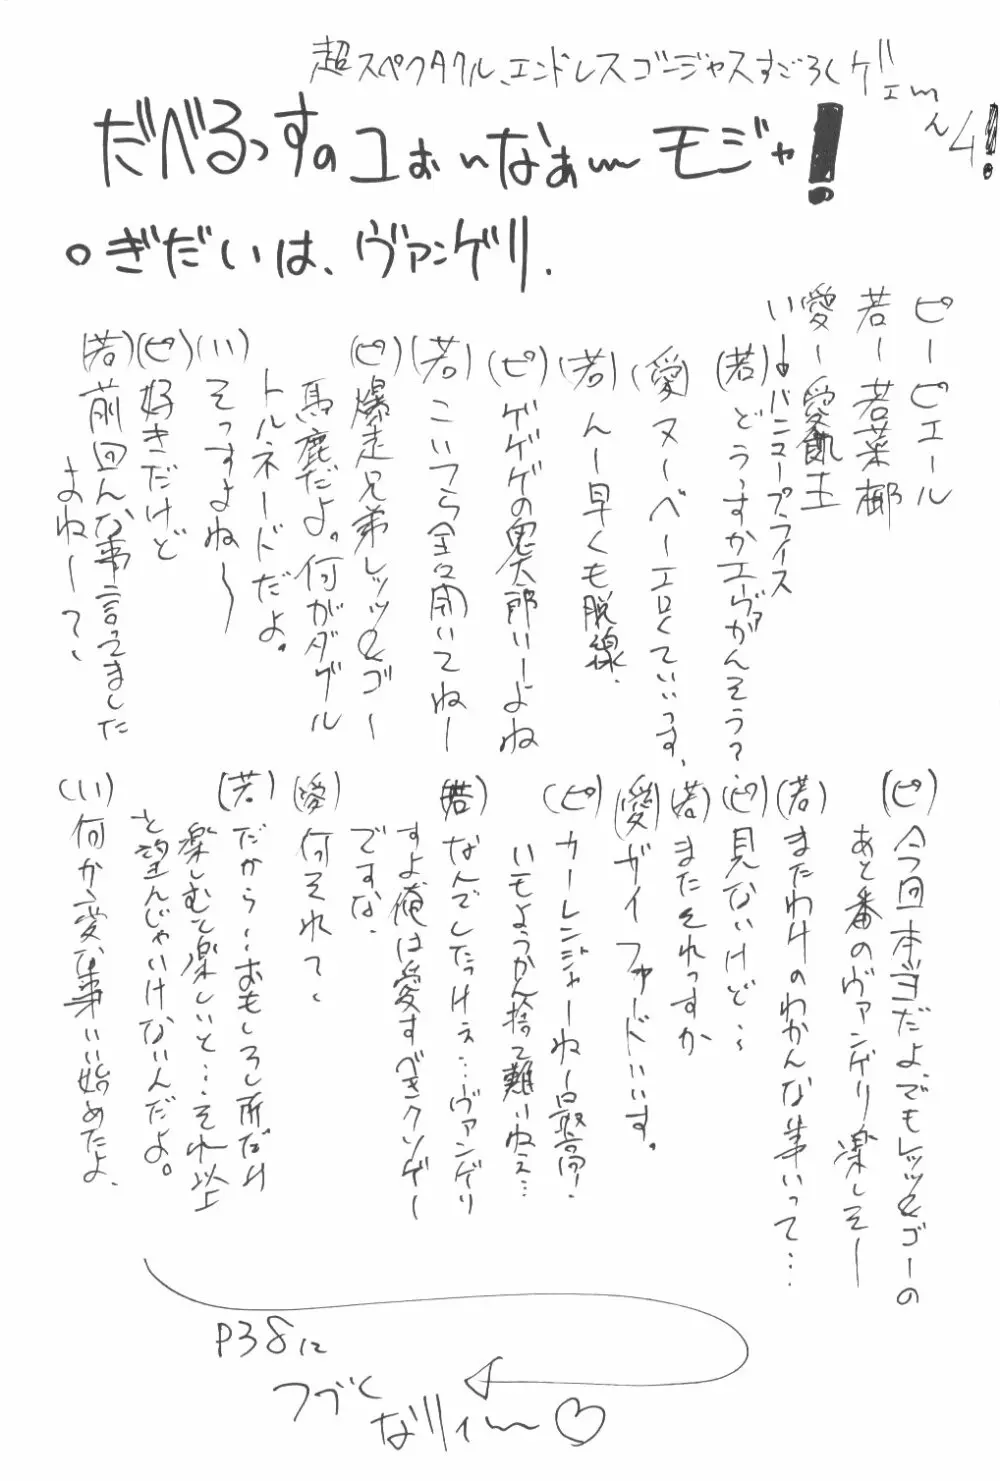 超スペクタクル、エンドレスゴージャスすごろくゲェーム!
だべるっすのコぉぃなぁ〜モジャ!
。ぎだいは、ヴァンゲリ.
ピー ピエール
若ー 若菜椰
愛ー 愛飢王
い→バニュープライス
(若)どうっすかエヴァがんそう?
(愛)ヌーベーエロくていいっす、
(若)んー早くも脱線.
(ピ)ゲゲゲの鬼太郎いーよね
(若)こいつら全々聞いてねー
(ピ)爆走兄弟レッツ&ゴー
馬鹿だよ。何がダブル
トルネードだよ。
(い)そっすよね〜
(ピ)好きだけど
(若)前回んな事言ってました
よねーて、
(ピ)今回本当だよ、でもレッツ&ゴーの
あと番のヴァンゲリ楽しそー
(若)またわけのわかんな事いって…
(ピ)見ないけど…
(若)またそれっすか
(愛)ガイファードいいす。
(ピ)カーレンジャーねー最高!
いもようかん捨て難いねぇ…
(若)なんでしたっけぇ…ヴァンゲリ
すよ俺は愛すべきクソゲー
ですな、
(愛)何それて、
(若)だから…おもしろし所だけ
楽しむて楽しいと…それ以上
と望んじゃいけないんだよ。
(い)何か変な事いい始めたよ、
P38に
つづく
なりィ〜♡